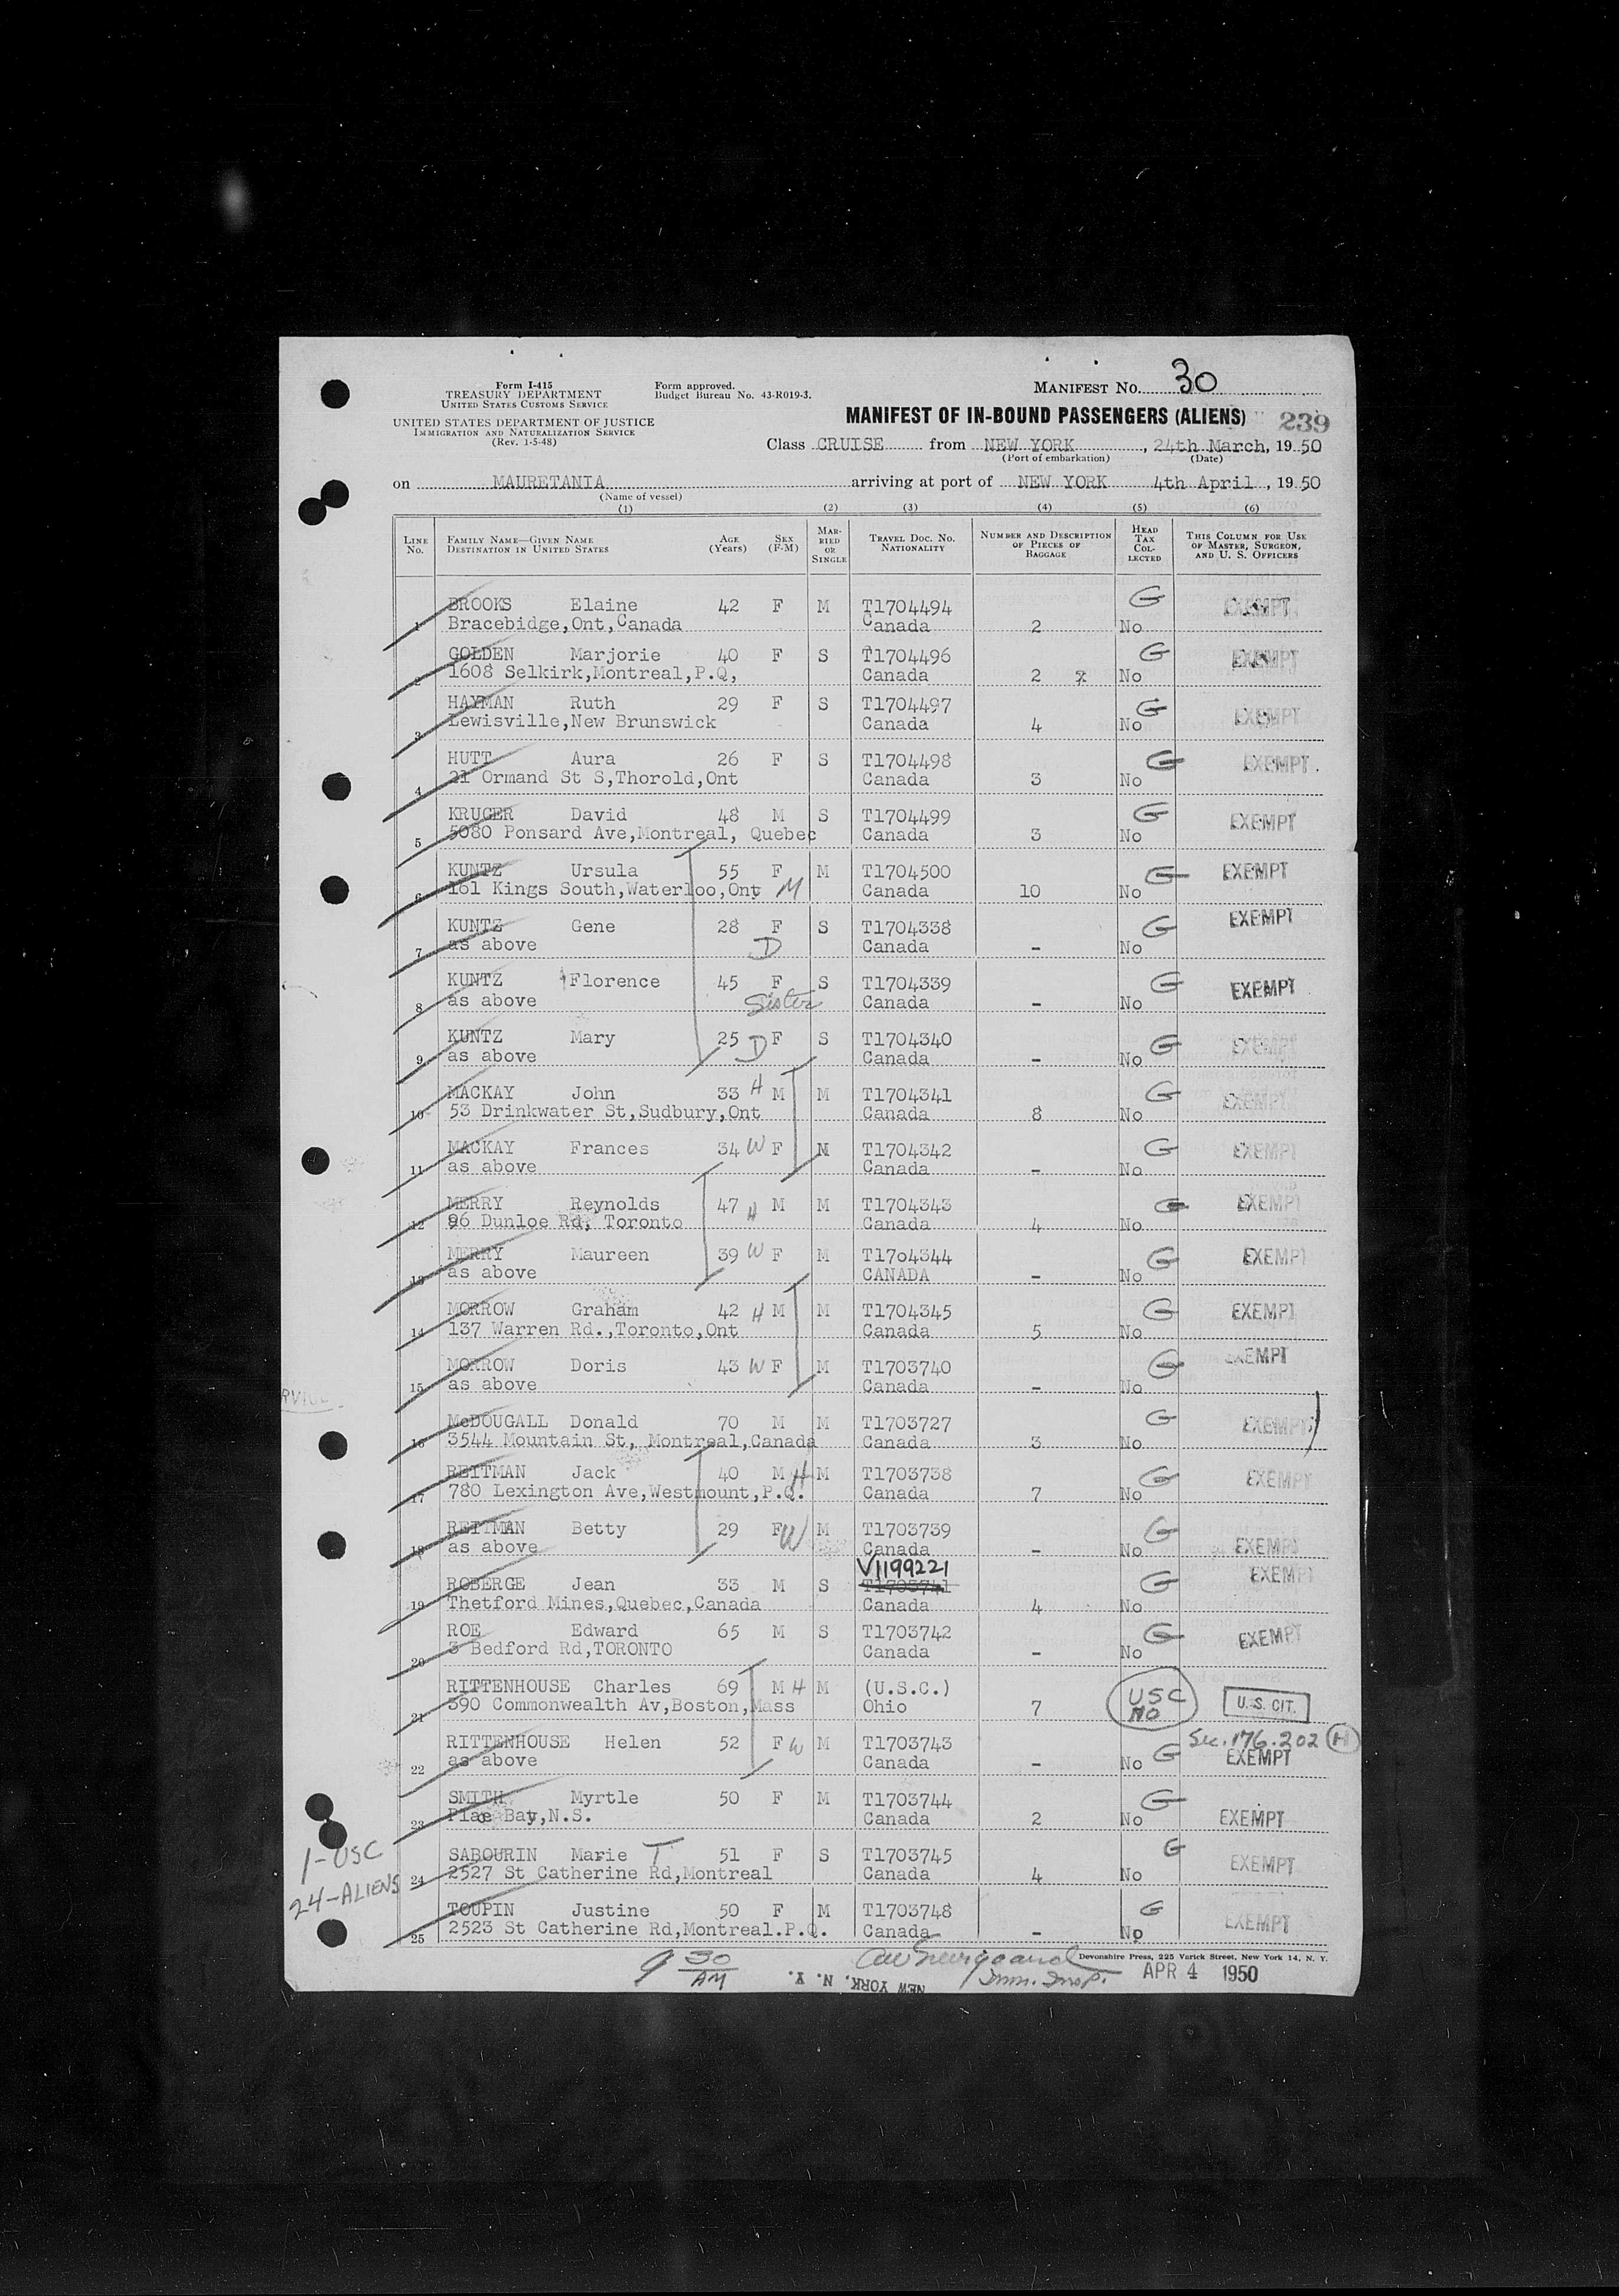 Form I-415
TREASURY DEPARTMENT
UNITED STATES CUSTOMS SERVICE
UNITED STATES DEPARTMENT OF JUSTICE
IMMIGRATION AND NATURALIZATION SERVICE
(Rev. 1-5-48)
Form approved.
Budget Bureau No. 43-R019-3.
MANIFEST NO. 30
MANIFEST OF IN-BOUND PASSENGERS (ALIENS) 239
Class CRUISE from NEW YORK, 24th March, 1950
(Port of embarkation) (Date)
on MAURETANIA arriving at port of NEW YORK 4th April, 1950
(Name of vessel)
(1) (2) (3) (4) (5) (6)
LINE NO. FAMILY NAME—GIVEN NAME DESTINATION IN UNITED STATES AGE (Years) SEX (F-M) MARRIED OR SINGLE TRAVEL DOC. NO. NATIONALITY NUMBER AND DESCRIPTION OF PIECES OF BAGGAGE HEAD TAX COLLECTED THIS COLUMN FOR USE OF MASTER, SURGEON, AND U. S. OFFICERS
BROOKS Elaine 42 F M T1704494 G EXEMPT
1 Bracebidge,Ont,Canada Canada 2 No
GOLDEN Marjorie 40 F S T1704496 G EXEMPT
2 1608 Selkirk,Montreal,P.Q, Canada 2 No
HAYMAN Ruth 29 F S T1704497 G EXEMPT
3 Lewisville,New Brunswick Canada 4 No
HUTT Aura 26 F S T1704498 G EXEMPT.
4 21 Ormand St S,Thorold,Ont Canada 3 No
KRUGER David 48 M S T1704499 G EXEMPT
5 5080 Ponsard Ave,Montreal, Quebec Canada 3 No
KUNTZ Ursula 55 F M T1704500 G EXEMPT
6 161 Kings South,Waterloo,Ont M Canada 10 No
KUNTZ Gene 28 F S T1704338 G EXEMPT
7 as above D Canada - No
KUNTZ Florence 45 F S T1704339 G EXEMPT
8 as above Sister Canada - No
KUNTZ Mary 25 D F S T1704340 G EXEMPT
9 as above Canada - No
MACKAY John 33 H M M T1704341 G EXEMPT
10 53 Drinkwater St,Sudbury,Ont Canada 8 No
MACKAY Frances 34 W F M T1704342 G EXEMPT
11 as above Canada - No
MERRY Reynolds 47 H M M T1704343 G EXEMPT
12 96 Dunloe Rd, Toronto Canada 4 No
MERRY Maureen 39 W F M T17o4344 G EXEMPT
13 as above CANADA - No
MORROW Graham 42 H M M T1704345 G EXEMPT
14 137 Warren Rd.,Toronto,Ont Canada 5 No
MORROW Doris 43 W F M T1703740 G EXEMPT
15 as above Canada - No
McDOUGALL Donald 70 M M T1703727 G EXEMPT
16 3544 Mountain St, Montreal,Canada Canada 3 No
REITMAN Jack 40 M H M T1703738 G EXEMPT
17 780 Lexington Ave,Westmount,P.Q. Canada 7 No
REITMAN Betty 29 F W M T1703739 G EXEMPT
18 as above Canada - No
V1199221
ROBERGE Jean 33 M S T1703741 G EXEMPT
19 Thetford Mines,Quebec,Canada Canada 4 No
ROE Edward 65 M S T1703742 G EXEMPT
20 3 Bedford Rd,TORONTO Canada - No
RITTENHOUSE Charles 69 M H M (U.S.C.) USC U. S. CIT.
21 390 Commonwealth Av,Boston,Mass Ohio 7 NO
RITTENHOUSE Helen 52 F W M T1703743 G Sec. 176.202 H
22 as above Canada - No EXEMPT
SMITH Myrtle 50 F M T1703744 G
23 Place Bay,N.S. Canada 2 No EXEMPT
SABOURIN Marie T 51 F S T1703745 G EXEMPT
24 2527 St Catherine Rd,Montreal Canada 4 No
TOUPIN Justine 50 F M T1703748 G EXEMPT
25 2523 St Catherine Rd,Montreal.P.Q. Canada - No
1-USC
24-ALIENS
Devonshire Press, 225 Varick Street, New York 14, N. Y.
9 30 AM NEW YORK, N. Y. Imm. Insp. APR 4 1950